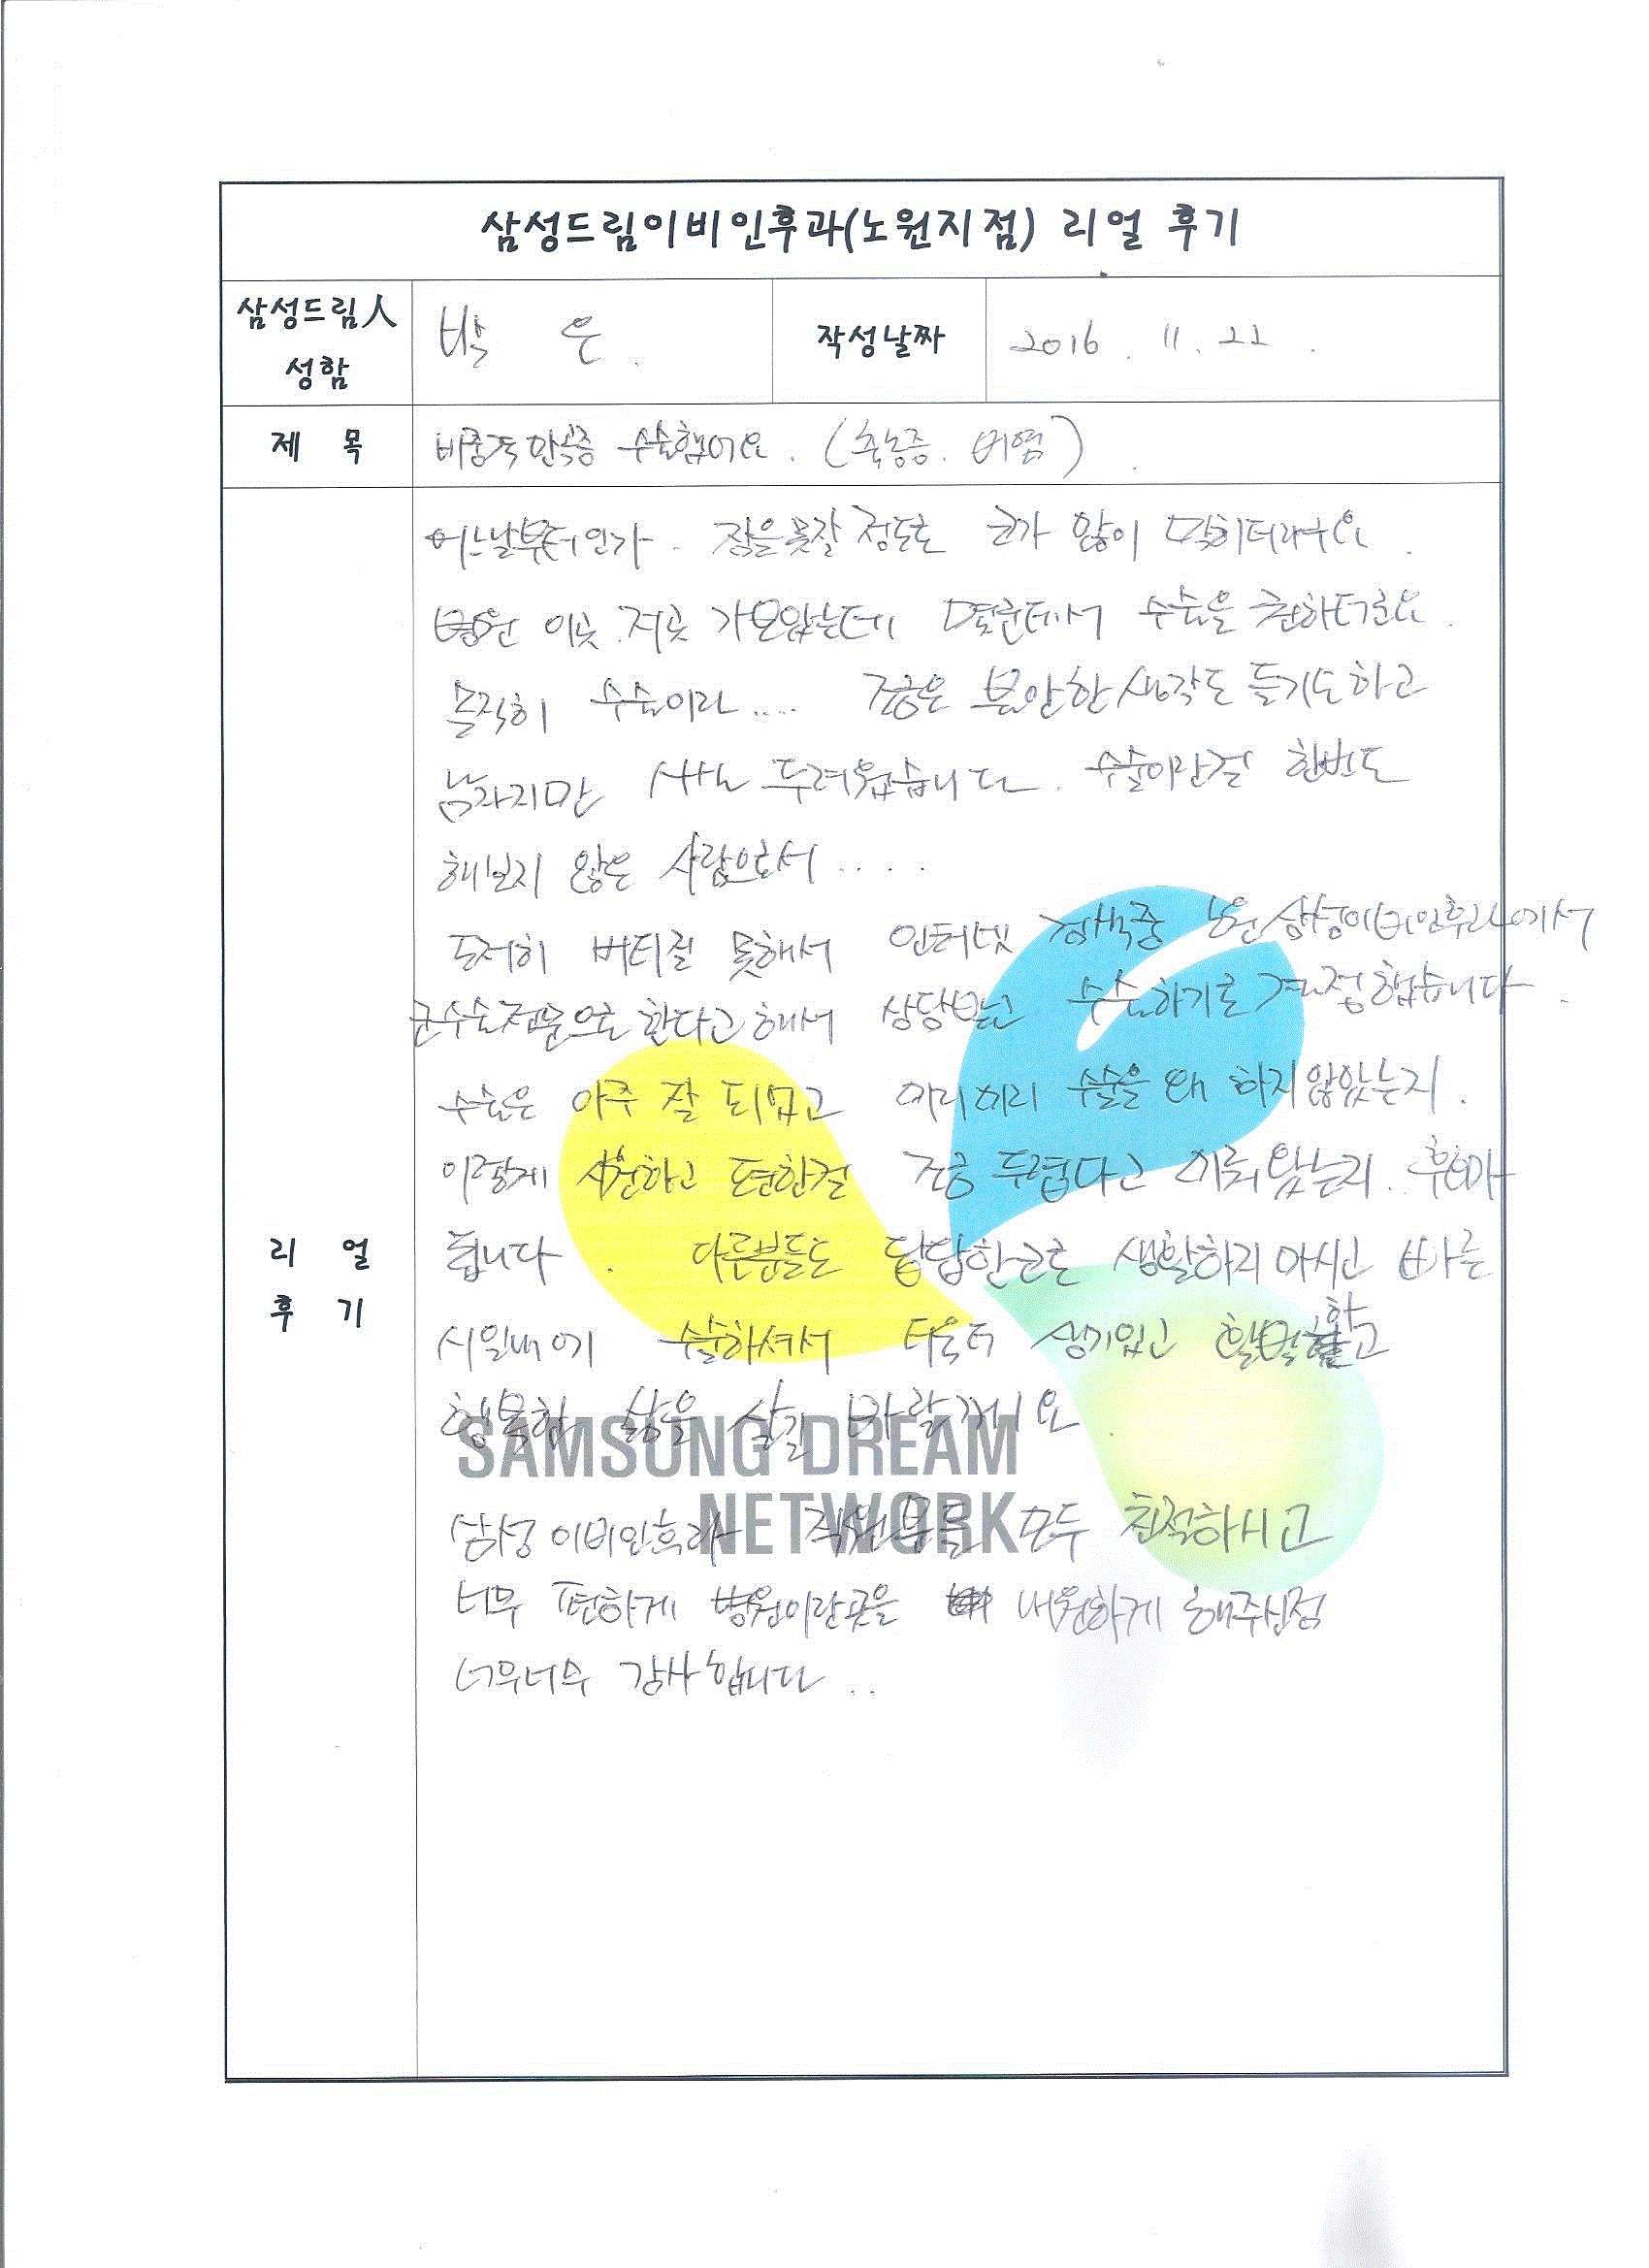 삼성드림이비인후과(노원지점) 리얼 후기
삼성드림人
성함
박 은
작성날짜
2016. 11. 22.
제 목
비중격만곡증 수술했어요. (축농증. 비염)
어느날부터인가. 잠을못잘 정도로 코가 많이 막히더라구요.
병원 이곳.저곳 가보았는데 몇군데서 수술을 권하더군요.
솔직히 수술이라.... 조금은 불안한생각도 들기도하고
남자지만 사실 두려웠습니다. 수술이란걸 한번도
해보지 않은 사람으로서.....
도저히 버티질 못해서 인터넷 검색중 노원삼성이비인후과에서
코수술전문으로 한다고해서 상담받고 수술하기로 결정했습니다.
수술은 아주 잘 되었고 미리미리 수술을 왜 하지않았는지.
이렇게 시원하고 편한걸 조금 두렵다고 미뤄왔는지. 후회가
됩니다. 다른분들도 답답한코로 생활하지마시고 빠른
시일내에 수술하셔서 더욱더 생기있고 활발하고
행복한 삶을 살길 바랄게요
SAMSUNG DREAM
NETWORK
삼성 이비인후과 직원분들 모두 친절하시고
너무 편하게 병원이란곳을 내원하게 해주신점
너무너무 감사합니다..
리 얼
후 기